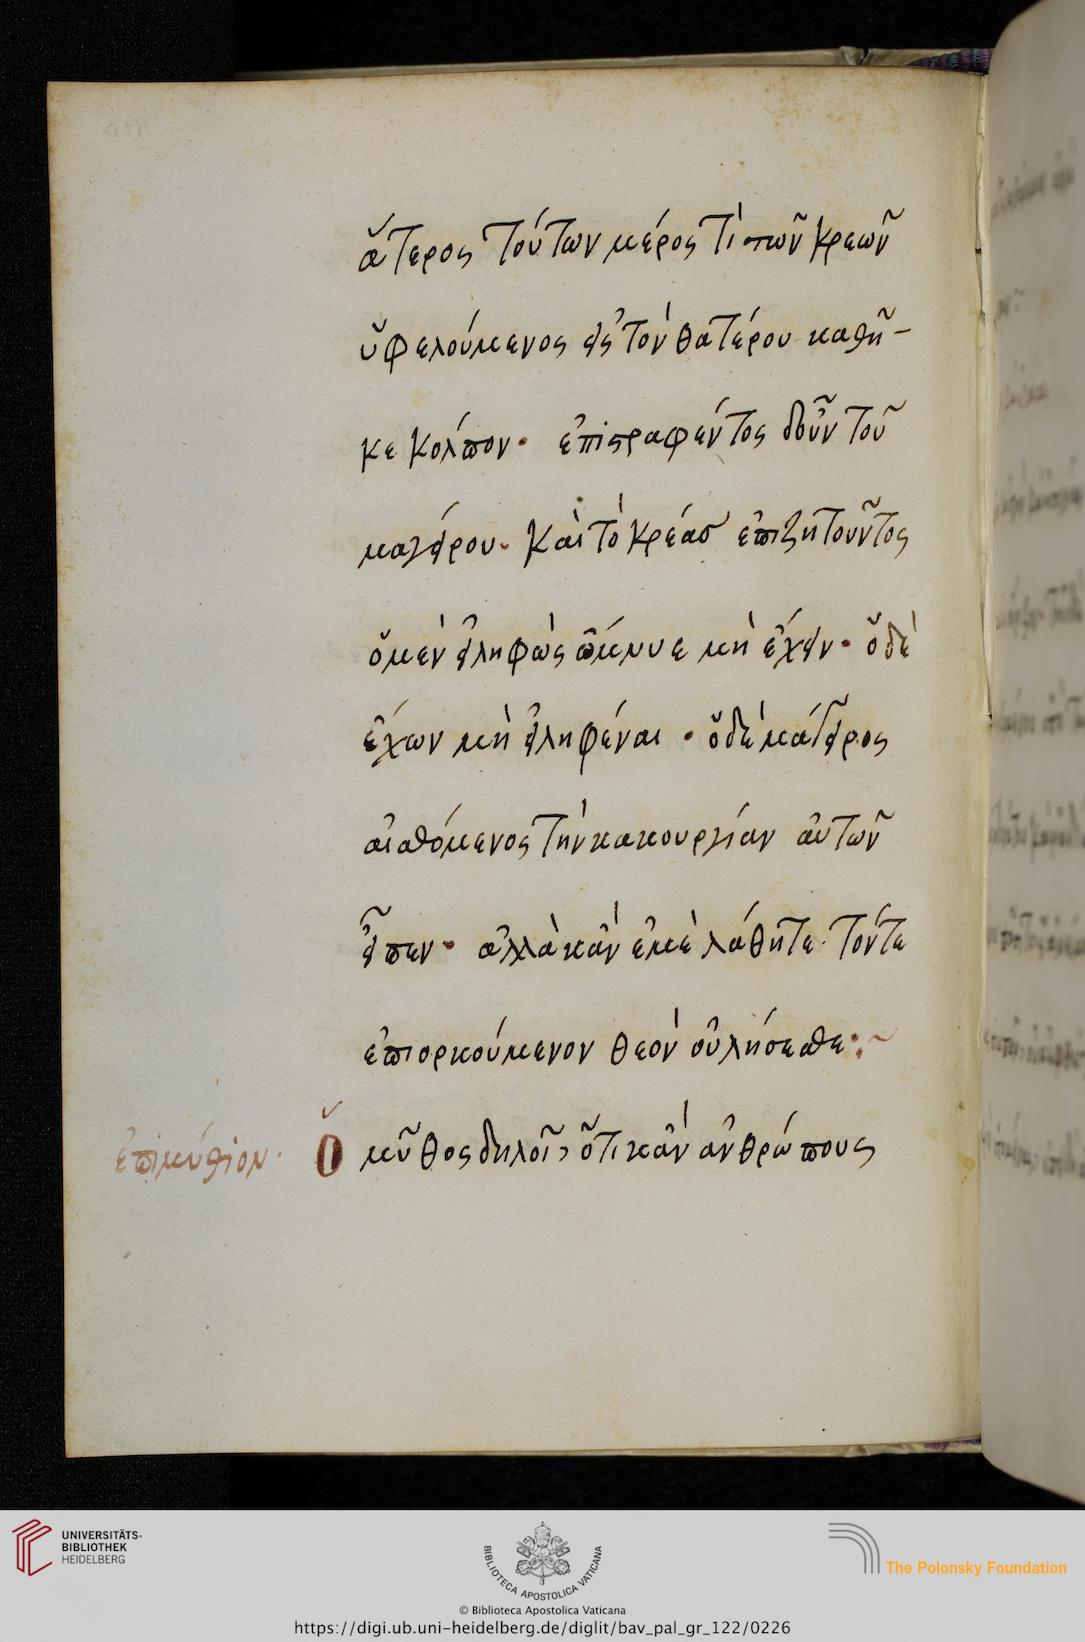 ἅτερος τούτων μέρος τὶ τῶν κρεῶν
ὑφελούμενος εἰς τὸν θατέρου καθῆ-
κε κόλπον. ἐπιστραφέντος δ' οὖν τοῦ
μαγείρου. καὶ τὸ κρέας ἐπιζητοῦντος
ὁ μὲν εἰληφὼς ὤμνυε μὴ ἔχειν. ὁ δὲ
ἔχων μὴ εἰληφέναι. ὁ δὲ μάγειρος
αἰσθόμενος τὴν κακουργίαν αὐτῶν
εἶπεν. ἀλλὰ κἂν ἐμὲ λάθητε. τόν τε
ἐπιορκούμενον θεὸν οὐ λήσεσθε:~
ἐπιμύθιον. Ὁ μῦθος δηλοῖ, ὅτι κἂν ἀνθρώπους
UNIVERSITÄTS-
BIBLIOTHEK
HEIDELBERG
BIBLIOTECA APOSTOLICA VATICANA
The Polonsky Foundation
© Biblioteca Apostolica Vaticana
https://digi.ub.uni-heidelberg.de/diglit/bav_pal_gr_122/0226